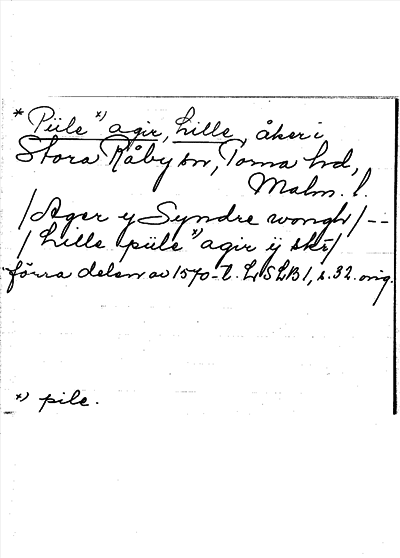 * Püle *) agir, Lille, åker i
Stora Råby sn, Torna hd,
Malm. l.
/Ager y Syndre wongh/--
/Lille püle *) agir ij skr/
förra delen av 1570-t. LSLB1, s. 32. orig.
*) pile.